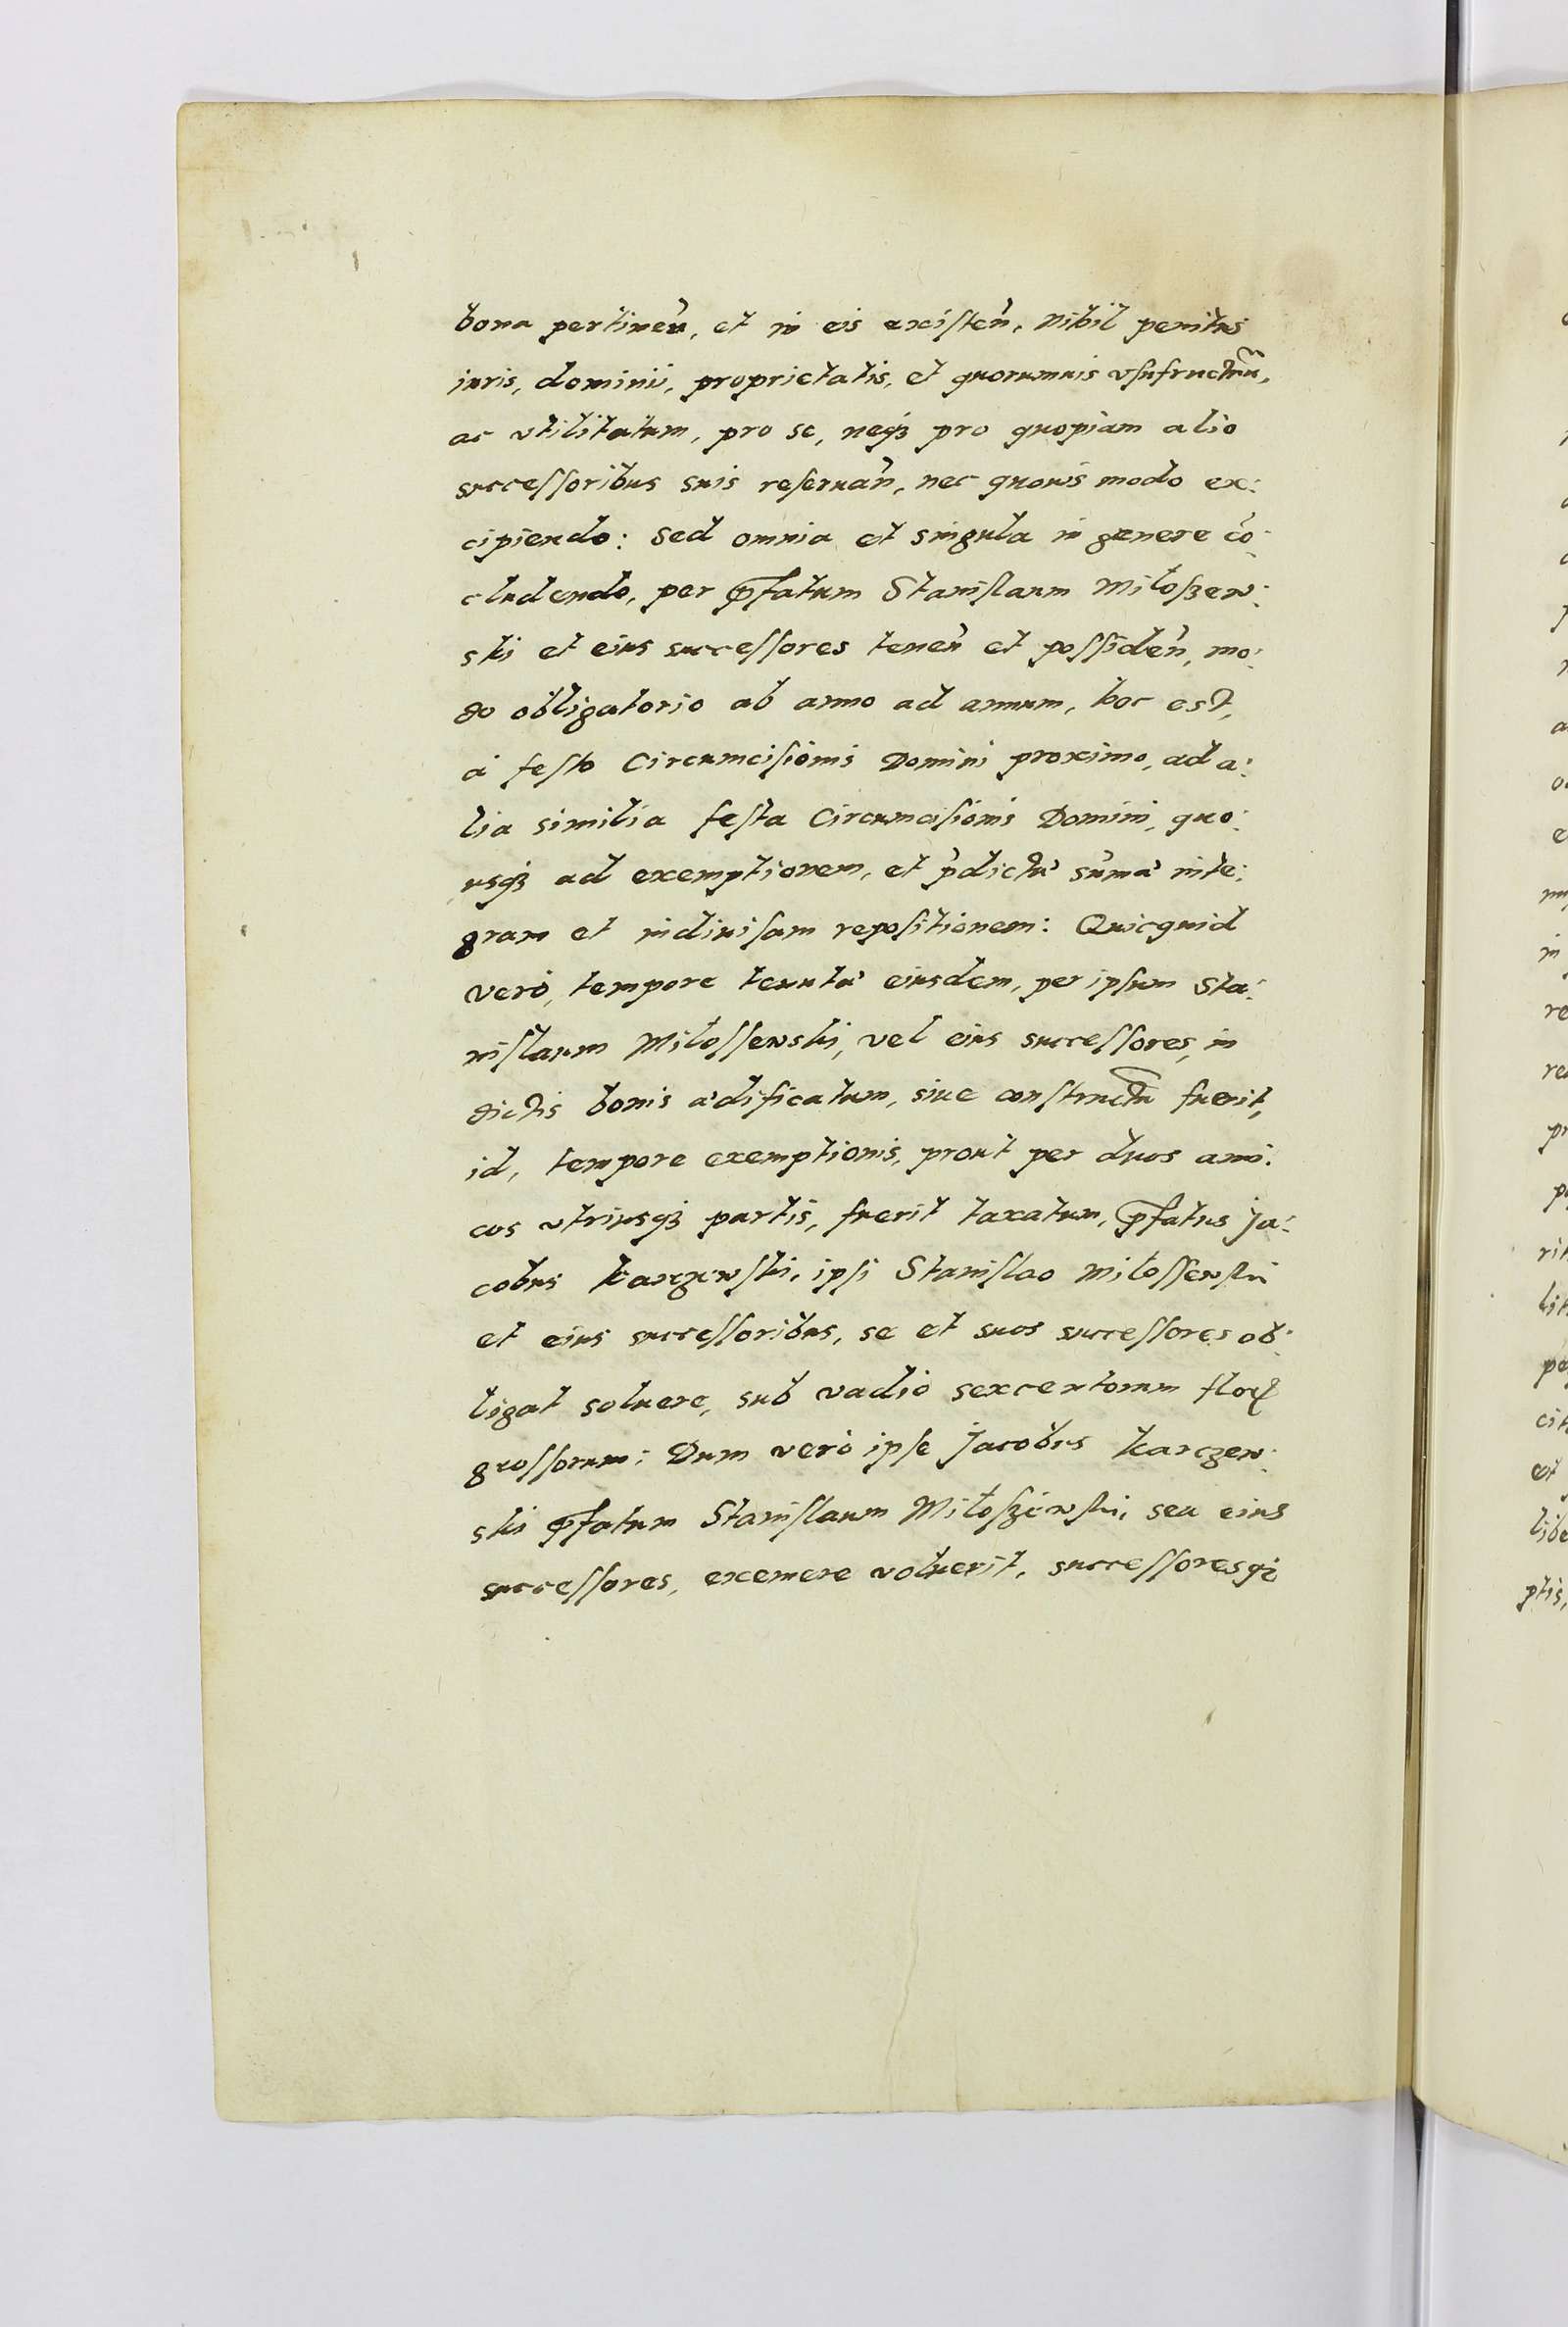 bona pertineñ, et in eis existeñ, nihil penitus
iuris, dominii, proprietatis, et quorumuis vsufructuũ,
ac vtilitatum, pro se, neqȝ pro quopiam alio
successoribus suis reseruan̄, nec quouis modo ex:
cipiendo: Sed omnia et singula in genere cō:
cludendo, per p̄fatum Stanislaum Miłoszew:
ski et eius successores teneñ et possideñ, mo:
do obligatorio ab anno ad annum, hoc est,
à festo Circumcisionis Domini proximo, ad a:
lia similia festa Circumcisionis Domini, quo:
usqȝ ad exemptionem, et p̄dictæ sūmæ inte:
gram et indiuisam repositionem: Quicquid
verò, tempore tenutæ eiusdem, per ipsum Sta:
nislaum Miłossewski, vel eius successores, in
dictis bonis ædificatum, siue constructũ fuerit,
id, tempore exemptionis, prout per duos ami:
cos vtriusqȝ partis, fuerit taxatum, p̄fatus Ja:
cobus Karczewski, ipsi Stanislao Miłossewski
et eius successoribus, se et suos successores ob:
ligat soluere, sub vadio sexcentorum floꝝ
grossorum: Dum verò ipse Jacobus Karczew:
ski p̄fatum Stanislaum Miłoszewski, seu eius
successores, exemere voluerit, successoresqȝ